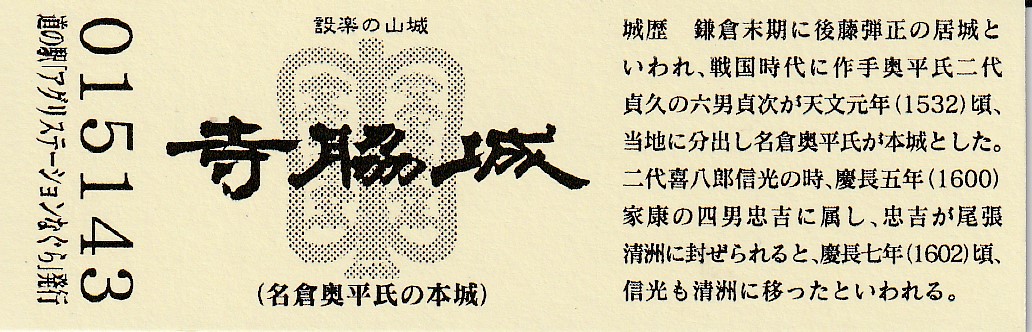 015143
道の駅「アグリステーションなぐら」発行
設楽の山城
寺脇城
(名倉奥平氏の本城)
城歴　鎌倉末期に後藤弾正の居城と
いわれ、戦国時代に作手奥平氏二代
貞久の六男貞次が天文元年(1532)頃、
当地に分出し名倉奥平氏が本城とした。
二代喜八郎信光の時、慶長五年(1600)
家康の四男忠吉に属し、忠吉が尾張
清洲に封ぜられると、慶長七年(1602)頃、
信光も清洲に移ったといわれる。